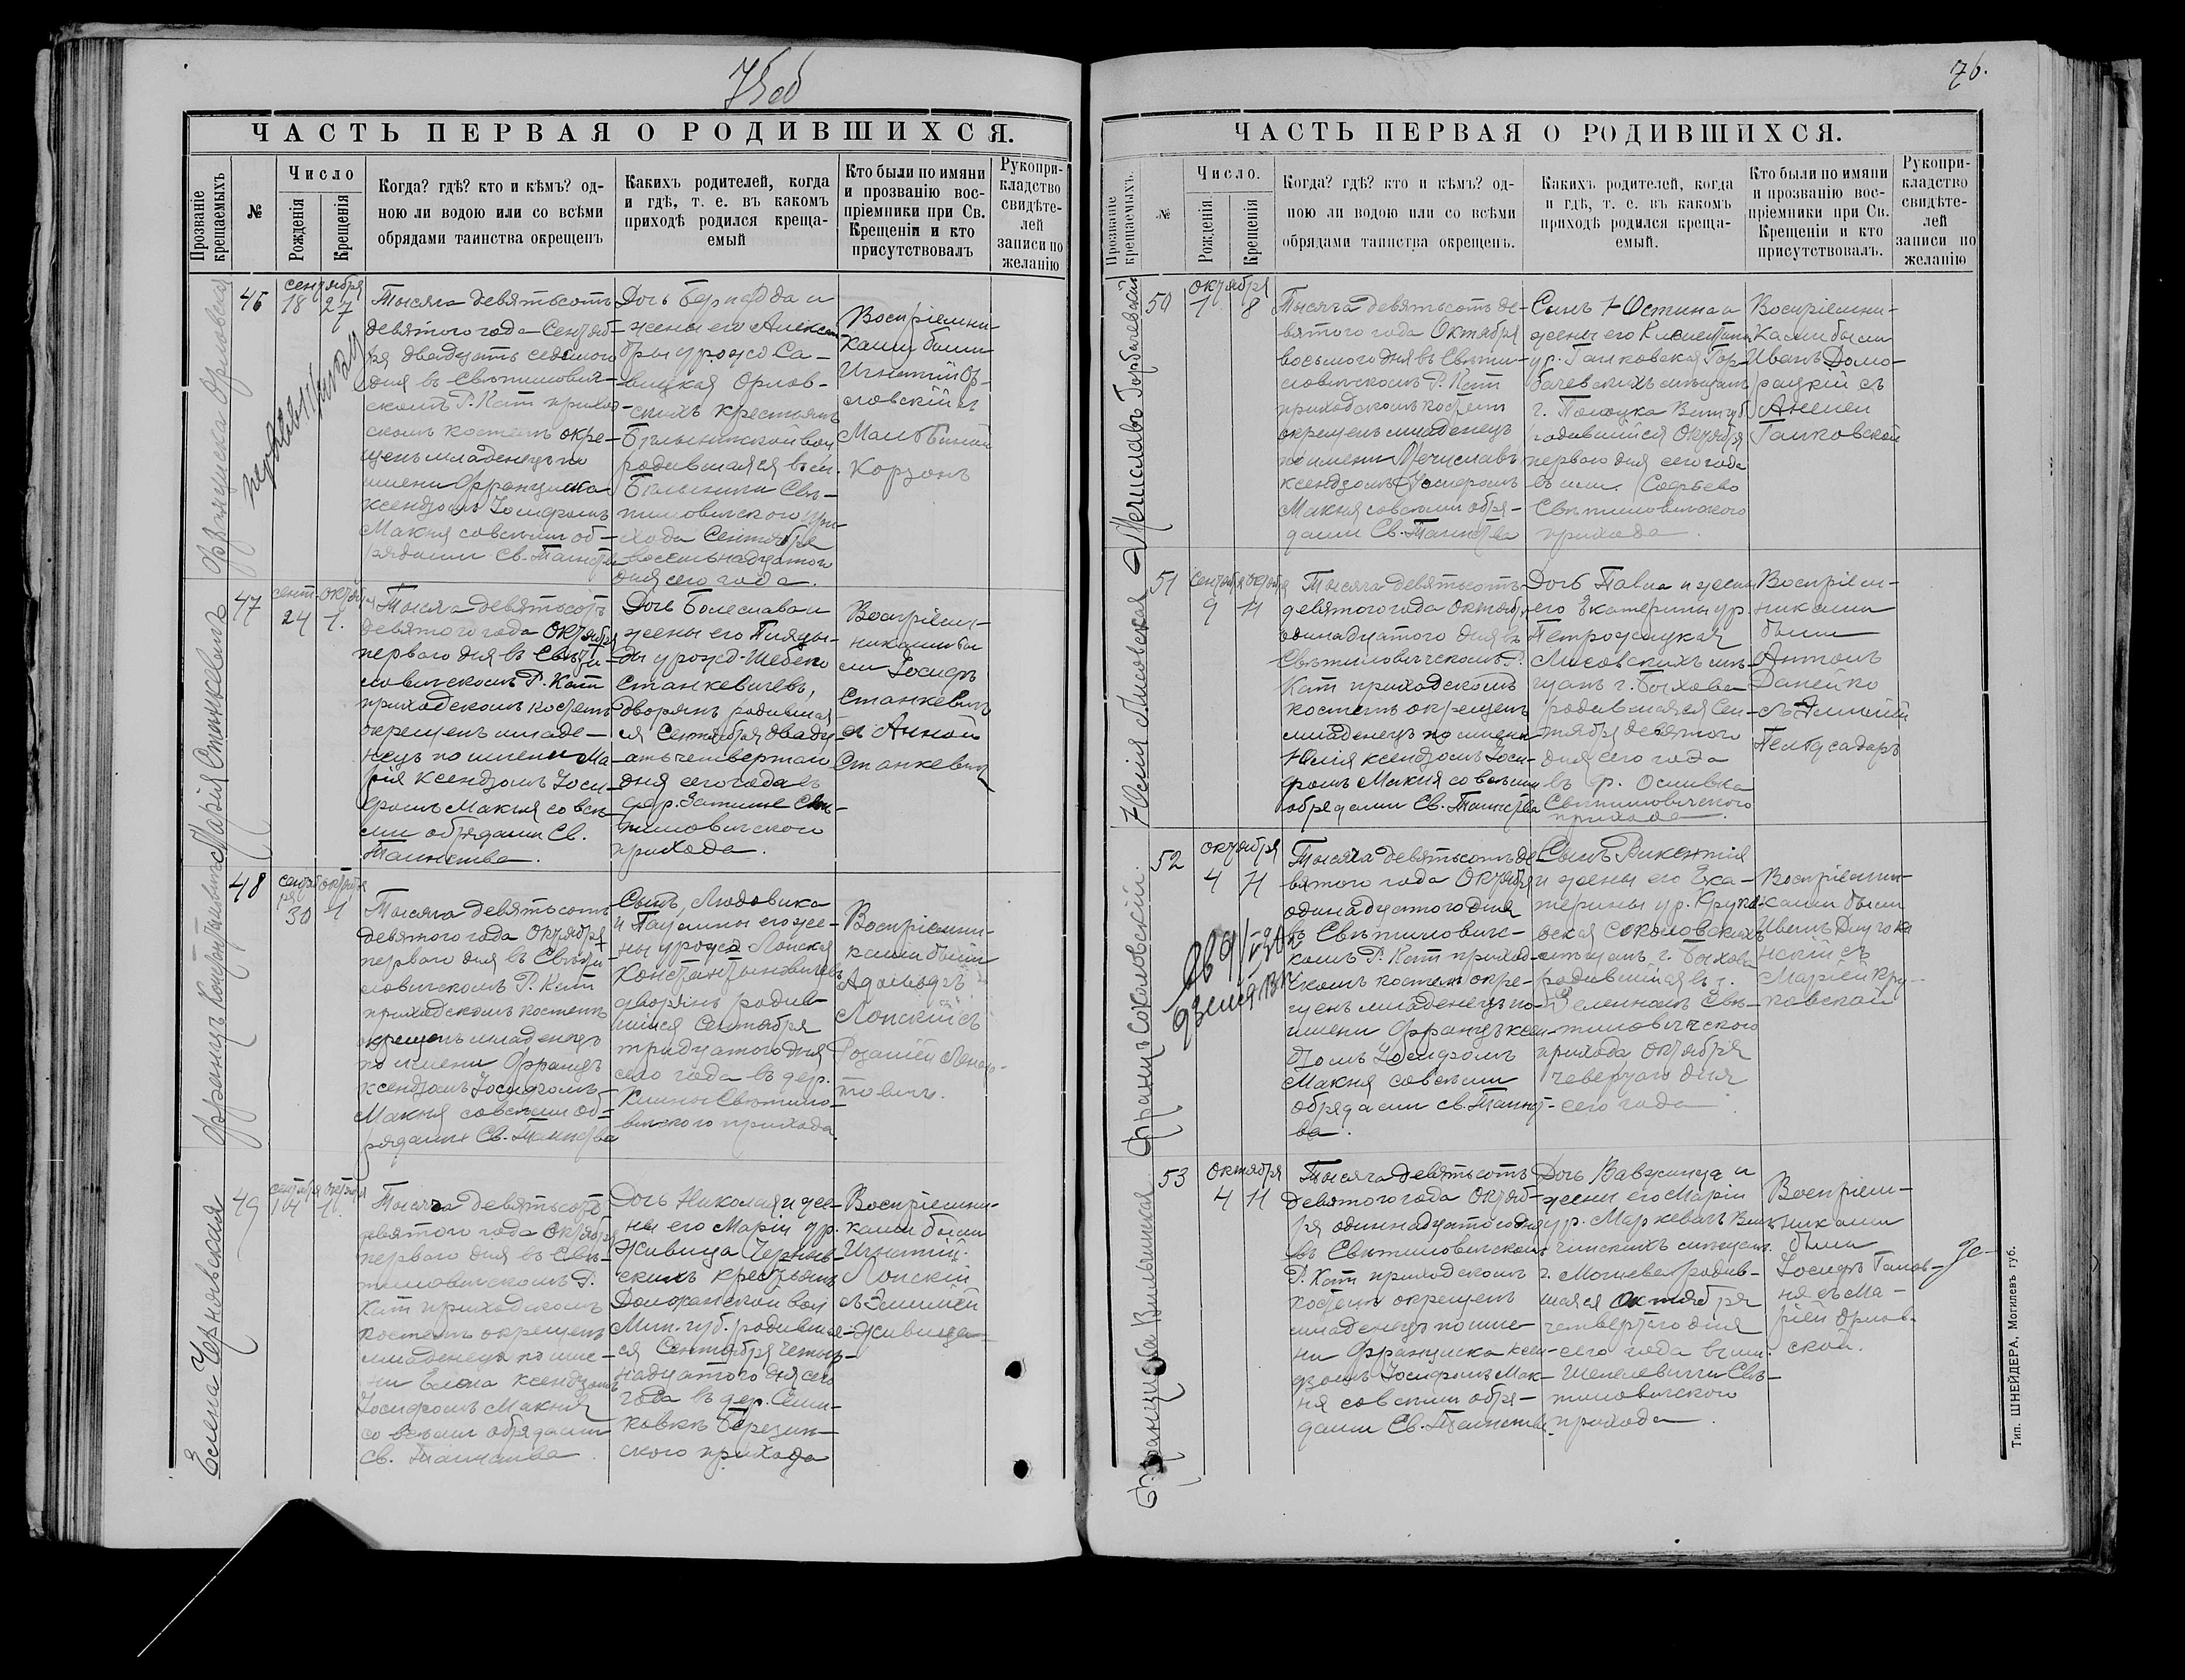 75об
ЧАСТЬ ПЕРВАЯ О РОДИВШИХСЯ.
Прозваніе крещаемыхъ
№
Число
Рожденія
Крещенія
Когда? гдѣ? кто и кѣмъ? од-
ною ли водою или со всѣми
обрядами таинства окрещенъ
Какихъ родителей, когда
и гдѣ, т. е. въ какомъ
приходѣ родился креща-
емый
Кто были по имяни
и прозванію вос-
пріемники при Св.
Крещеніи и кто
присутствовалъ
Рукопри-
кладство
свидѣте-
лей
записи по
желанію
Франциска Орловская
46
сентября
18 27
Тысяча девятьсотъ
девятого года Сентяб-
ря двадцать седьмого
дня въ Свѣтилович-
скомъ Р. Кат приход-
скомъ костелѣ окре-
щенъ младенецъ по
имени Франциска
ксендзомъ Іосифомъ
Макня совсѣми об-
рядами Св. Таинства
Дочь Бернарда и
жены его Алексан
дры урожд Са-
вицкая Орлов-
скихъ крестьянъ
Бѣлыничской вол
родившаяся въ м.
Бѣлыничи Свѣ-
тиловичского при-
хода Сентября
восемьнадцатого
дня сего года.
Воспріемни-
ками были
Игнатій Ор-
ловскій съ
Мальвиной
Корзонъ
Марія Станкевичъ
47
сент. октября
24 1.
Тысяча девятьсотъ
девятого года Октября
первого дня въ Свѣти-
ловичскомъ Р. Кат
приходскомъ костелѣ
окрещенъ младе-
нецъ по имени Ма
рія ксендзомъ Іоси-
фомъ Макня со всѣ-
ми обрядами Св.
Таинства.
Дочь Болеслава и
жены его
урожд. Шебеко
Станкевичевъ,
дворянъ родившая
ся Сентября двадц
ать четвертаго
дня сего года въ
дер. Затишье Свѣ-
тиловичского
прихода.
Воспріем-
никами бы
ли Іосифъ
Станкевичъ
съ Анной
Станкевичъ
Францъ Константиновичъ
48
сентября октября
30 1
Тысяча девятьсотъ
девятого года Октября
первого дня въ Свѣти-
ловичскомъ Р. Кат
приходскомъ костелѣ
окрещенъ младенецъ
по имени Францъ
ксендзомъ Іосифомъ
Макня совсѣми об-
рядами Св. Таинства
Сынъ Людовика
и Паулины его же-
ны урожд Лопская
Константиновичевъ
дворянъ родив-
шійся Сентября
тридцатого дня
сего года въ дер.
Свѣтило-
вичского прихода
Воспріемни-
ками были
Адольфъ
Лопскій съ
Розаліей
Елена Черновская
49
сентября октября
14 1.
Тысяча девятьсотъ
девятого года Октября
первого дня въ Свѣ-
тиловичскомъ Р.
Кат приходскомъ
костелѣ окрещенъ
младенецъ по име-
ни Елена ксендзомъ
Іосифомъ Макня
со всѣми обрядами
Св. Таинства.
Дочь Николая и же-
ны его Маріи ур.
Живица Чернов-
скихъ крестьянъ
вол
Мин. губ. родившая-
ся Сентября четыр-
надцатого дня сего
года въ дер.
Березин-
ского прихода
Воспріемни-
ками были
Игнатій
Лопскій
съ Эмиліей
Живица
76.
ЧАСТЬ ПЕРВАЯ О РОДИВШИХСЯ.
Прозваніе крещаемыхъ.
№
Число.
Рожденія
Крещенія
Когда? гдѣ? кто и кѣмъ? од-
ною ли водою или со всѣми
обрядами таинства окрещенъ.
Какихъ родителей, когда
и гдѣ, т. е. въ какомъ
приходѣ родился креща-
емый.
Кто были по имяни
и прозванію вос-
пріемники при Св.
Крещеніи и кто
присутствовалъ.
Рукопри-
кладство
свидѣте-
лей
записи по
желанію
Мечиславъ Горбачевскій
50
октября
1 8
Тысяча девятьсотъ де-
вятого года Октября
восьмого дня въ Свѣти-
ловичскомъ Р. Кат
приходскомъ костелѣ
окрещенъ младенецъ
по имени Мечиславъ
ксендзомъ Іосифомъ
Макня совсѣми обря-
дами Св. Таинства
Сынъ Юстина и
жены его Клементины
ур. Галковская Гор-
бачевскихъ мѣщанъ
г. Полоцка Вит губ
родившійся Октября
первого дня сего года
въ им.
Свѣтиловичского
прихода.
Воспріемни-
ками были
Иванъ Домо-
рацкій съ
Анелей
Галковской
Юлія Лисовская
51
сентября октября
9 11
Тысяча девятьсотъ
девятого года Октября
одинадцатого дня въ
Свѣтиловичскомъ Р.
Кат приходскомъ
костелѣ окрещенъ
младенецъ по имени
Юлія ксендзомъ Іоси-
фомъ Макня совсѣми
обрядами Св. Таинства
Дочь Павла и жены
его Екатерины ур.
Петрожицкая
Лисовскихъ мѣ-
щанъ г. Быхова
родившаяся Сен-
тября девятого
дня сего года
въ ф. Осливка
Свѣтиловичского
прихода.
Воспріем-
никами
были
Антонъ
Данейко
съ Эмиліей
Францъ Соколовскій.
52
октября
4 11
Тысяча девятьсотъ де
вятого года Октября
одинадцатого дня
въ Свѣтилович-
комъ Р. Кат приход-
скомъ костелѣ окре-
щенъ младенецъ по
имени Францъ ксен-
дзомъ Іосифомъ
Макня совсѣми
обрядами св. Таинст-
ва.
Сынъ Викентія
и жены его Ека-
терины ур. Круков-
ская Соколовскихъ
мѣщанъ г. Быхова
родившійся въ
Свѣ-
тиловичского
прихода Октября
четвертаго дня
сего года
Воспріемни-
ками были
Иванъ
съ
Маріей Кру-
ковской
Франциска Вильчинская
53
Октября
4 11
Тысяча девятьсотъ
девятого года Октяб-
ря одиннадцатого дня
въ Свѣтиловичскомъ
Р. Кат приходскомъ
костелѣ окрещенъ
младенецъ по име-
ни Франциска ксен-
дзомъ Іосифомъ Мак-
ня совсѣми обря-
дами Св. Таинства
Дочь Вавжинца и
жены его Маріи
ур. Маркевичъ Виль-
чинскихъ мѣщанъ
г. Могилева родив-
шаяся Октября
четвертого дня
сего года въ им.
Шепелевичи Свѣ-
тиловичского
прихода.
Воспріем-
никами
были
Іосифъ
съ Ма-
ріей Орлов-
ской.
Тип. ШНЕЙДЕРА, Могилевъ губ.